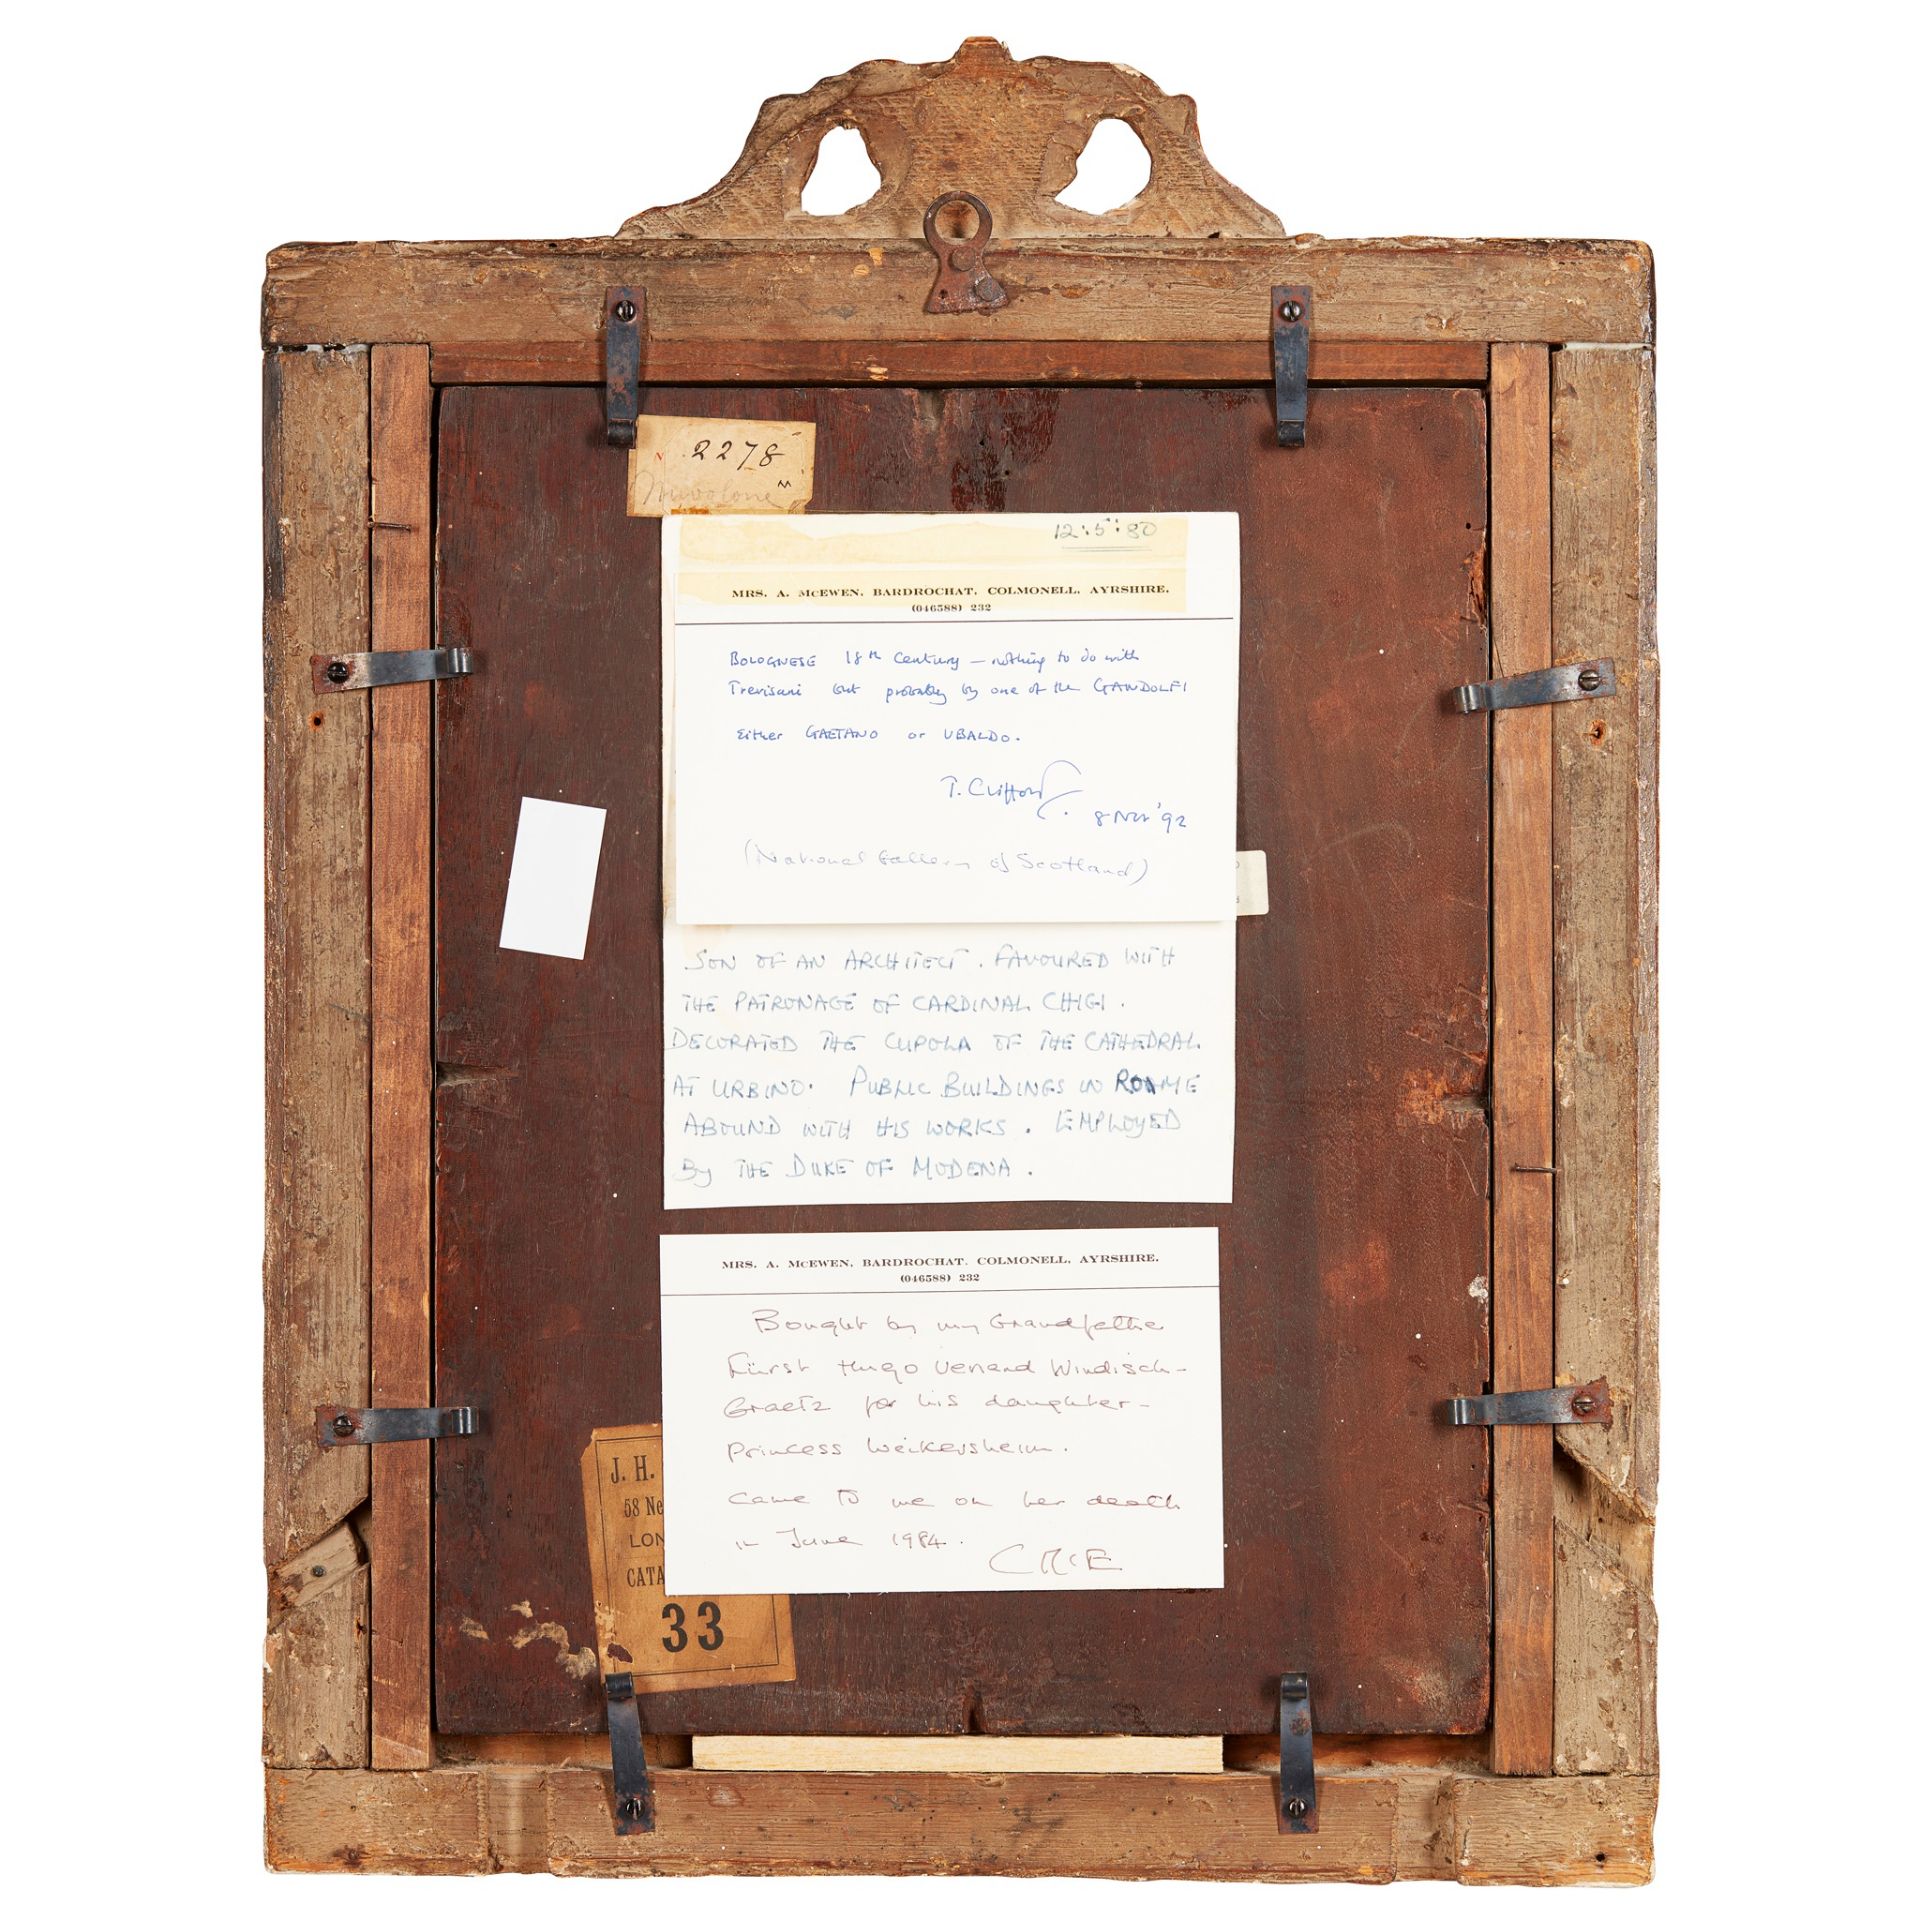 N. 2278
Nuvolone
12:5:80
MRS. A. McEWEN, BARDROCHAT, COLMONELL, AYRSHIRE.
(046588) 232
BOLOGNESE 18th Century — nothing to do with
Trevisani but probably by one of the GANDOLFI
Either GAETANO or UBALDO.
T. Clifford
8 Nov '92
(National Gallery of Scotland)
SON OF AN ARCHITECT. FAVOURED WITH
THE PATRONAGE OF CARDINAL CHIGI.
DECORATED THE CUPOLA OF THE CATHEDRAL
AT URBINO. PUBLIC BUILDINGS IN ROME
ABOUND WITH HIS WORKS. EMPLOYED
By THE DUKE OF MODENA.
MRS. A. McEWEN, BARDROCHAT, COLMONELL, AYRSHIRE.
(046588) 232
Bought by my Grandfather
Fürst Hugo Veriand Windisch-
Graetz for his daughter-
Princess Weikersheim.
Came to me on her death
in June 1984.
C McE
J. H.
58 Ne
LON
CATA
33